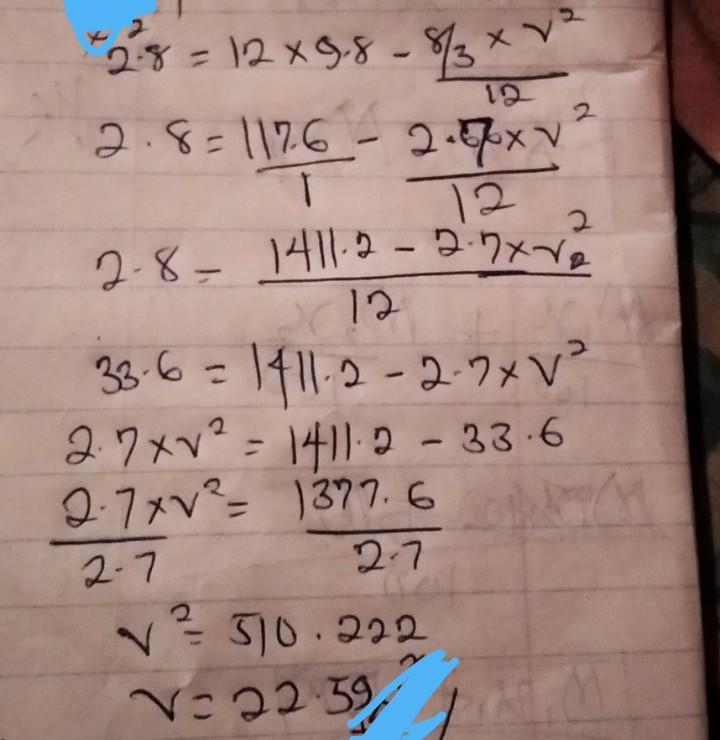 2.8 = 12 × 9.8 - 8/3 × v² / 12
2.8 = 117.6 / 1 - 2.67 × v² / 12
2.8 = 1411.2 - 2.7 × v² / 12
33.6 = 1411.2 - 2.7 × v²
2.7 × v² = 1411.2 - 33.6
2.7 × v² / 2.7 = 1377.6 / 2.7
v² = 510.222
v = 22.59